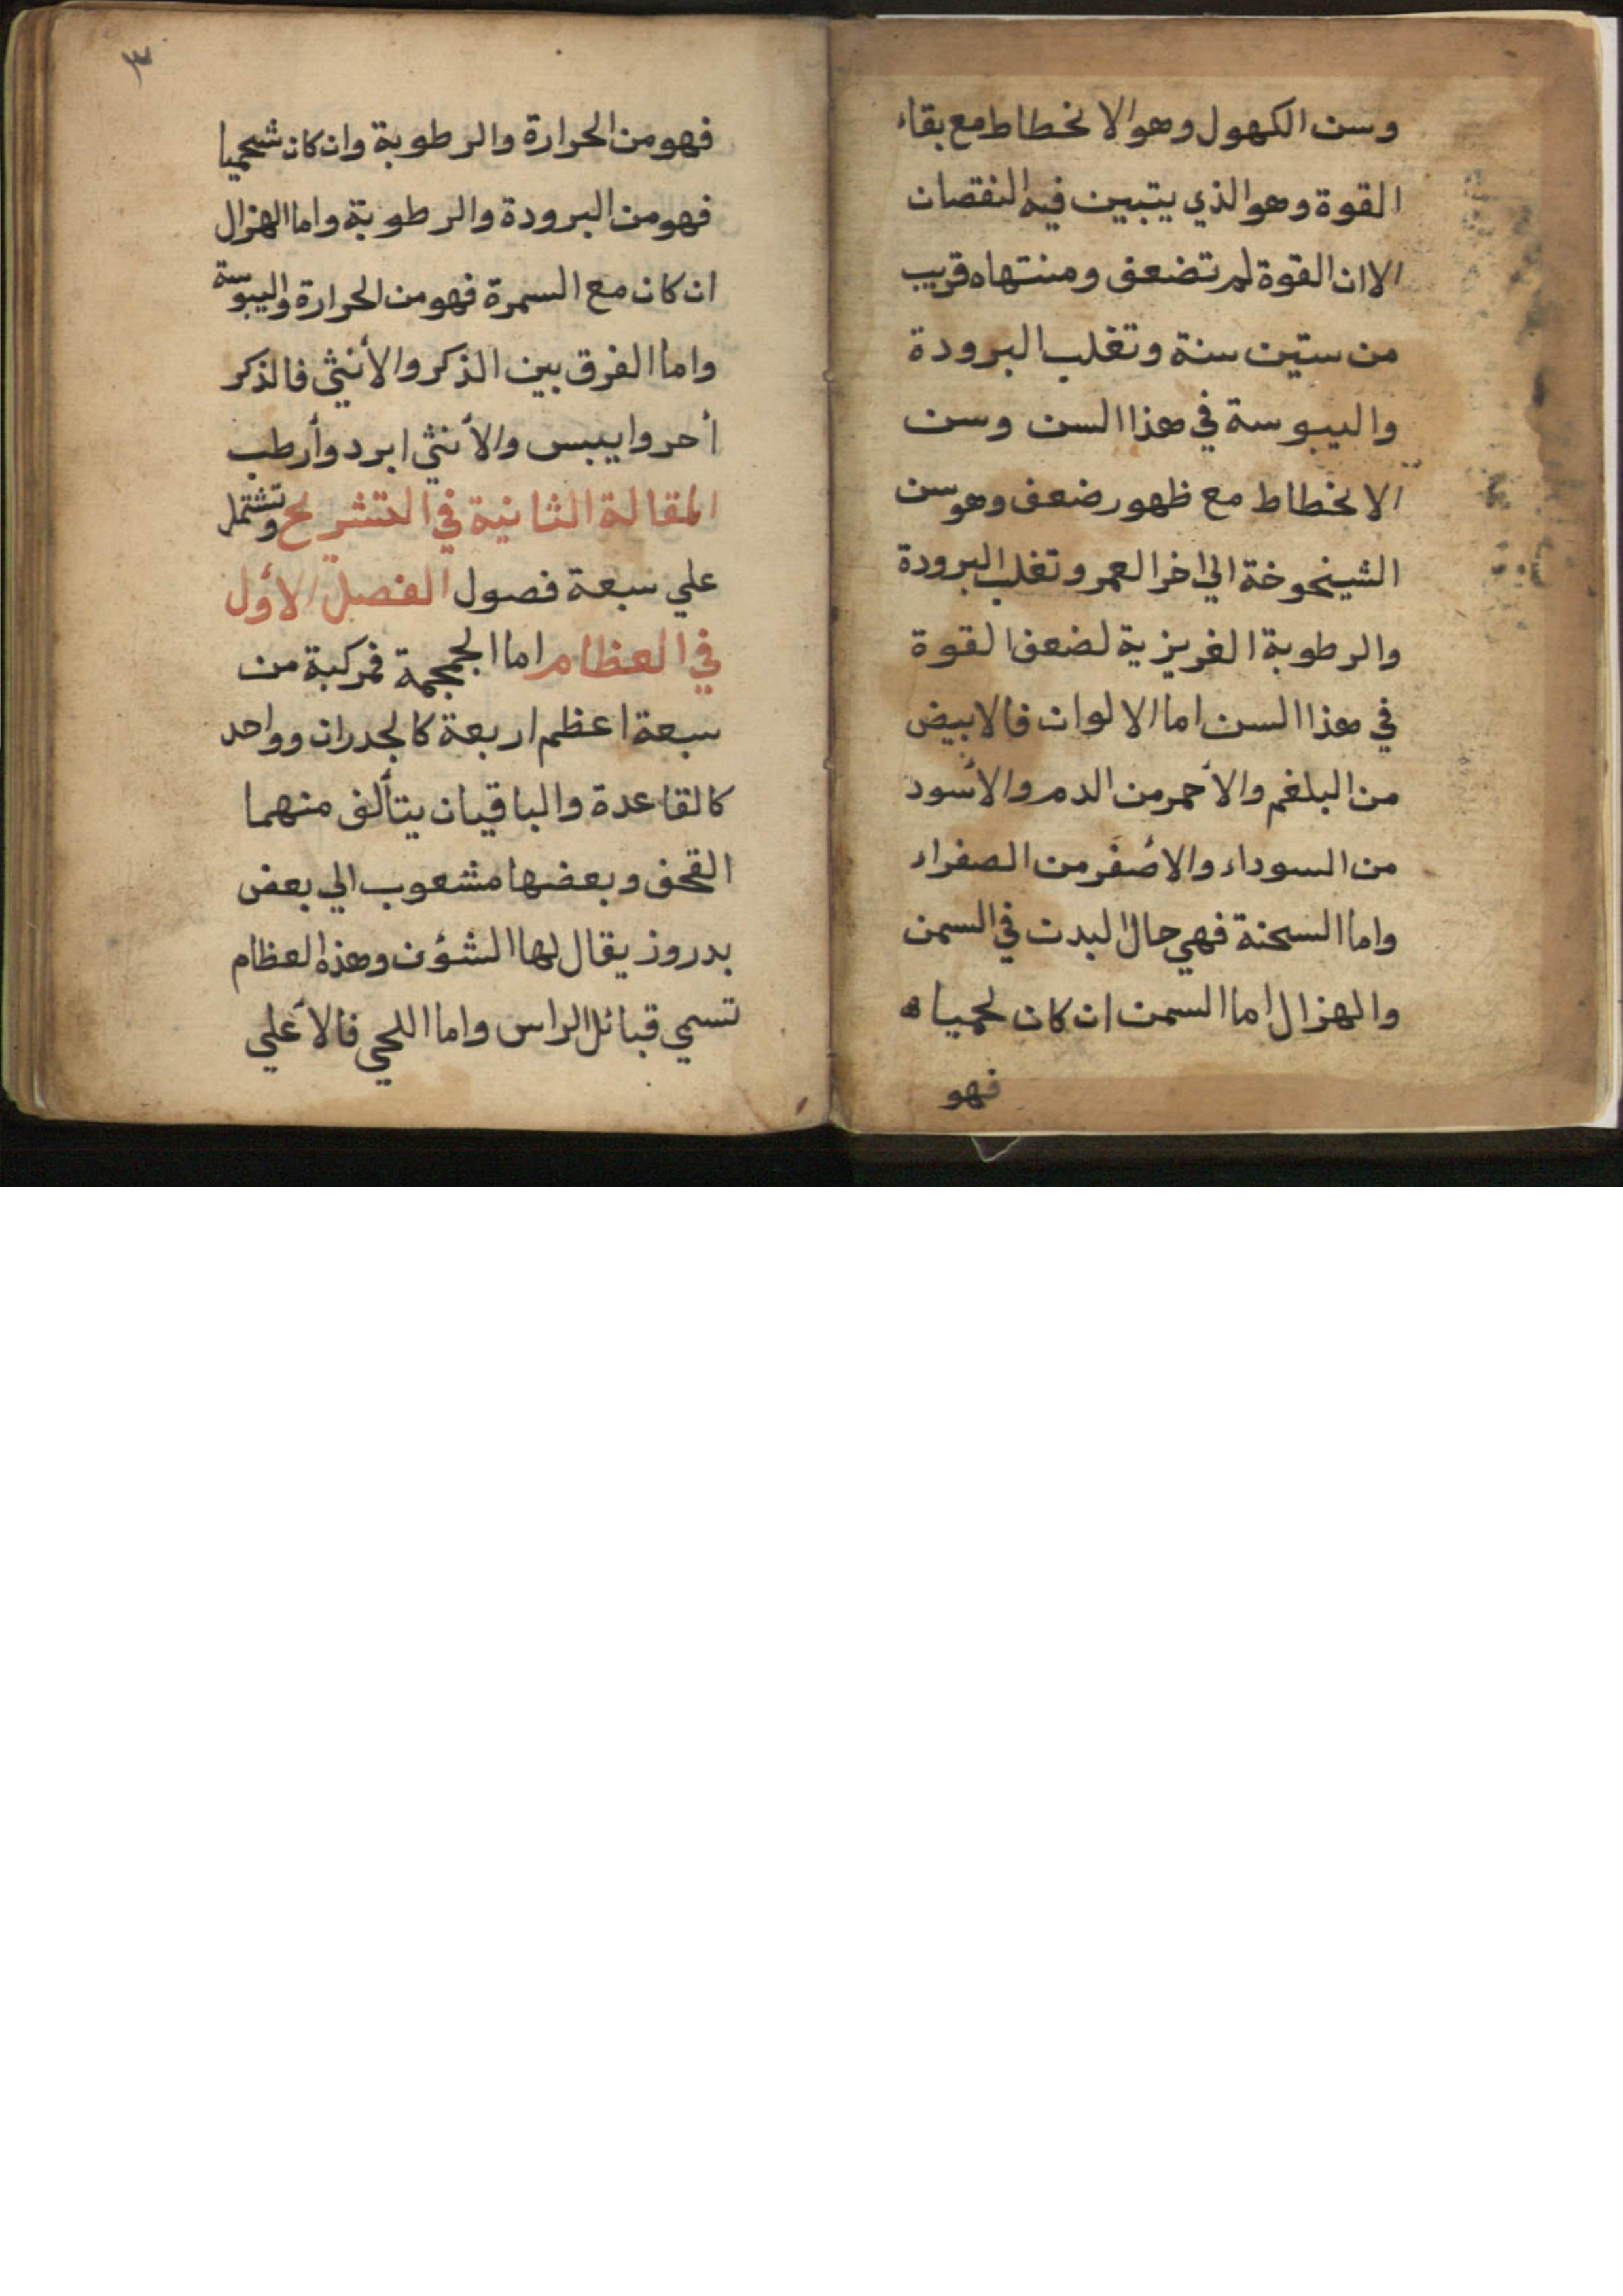 وسن الكهول وهو الانحطاط مع بقاء
القوة وهو الذي يتبين فيه النقصان
الا ان القوة لم تضعف ومنتهاه قريب
من ستين سنة وتغلب البرودة
واليبوسة في هذا السن وسن
الانحطاط مع ظهور ضعف وهو سن
الشيخوخة الي اخر العمر وتغلب البرودة
والرطوبة الغريزية لضعف القوة
في هذا السن اما الالوان فالابيض
من البلغم والأحمر من الدم والأسود
من السوداء والاصفر من الصفراء
واما السحنة فهي حال البدن في السمن
والهزال اما السمن ان كان لحميا
فهو
٣
فهو من الحرارة والرطوبة وان كان شحميا
فهو من البرودة والرطوبة واما الهزال
ان كان مع السمرة فهو من الحرارة واليبوسة
واما الفرق بين الذكر والأنثي فالذكر
أحر وايبس والأنثي ابرد وأرطب
المقالة الثانية في التشريح وتشتمل
علي سبعة فصول الفصل الأول
في العظام اما الجمجمة فمركبة من
سبعة اعظم اربعة كالجدران وواحد
كالقاعدة والباقيان يتألف منهما
القحف وبعضها مشعوب الي بعض
بدروز يقال لها الشؤن وهذه العظام
تسمي قبائل الراس واما اللحي فالأعلي